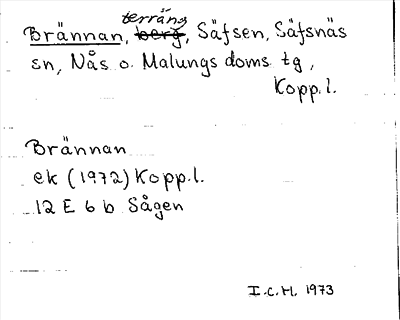 terräng
Brännan, berg, Säfsen, Säfsnäs
sn, Nås o. Malungs doms. tg,
Kopp.l.
Brännan
ek (1972) Kopp.l.
12 E 6 b Sågen
I.C.H. 1973